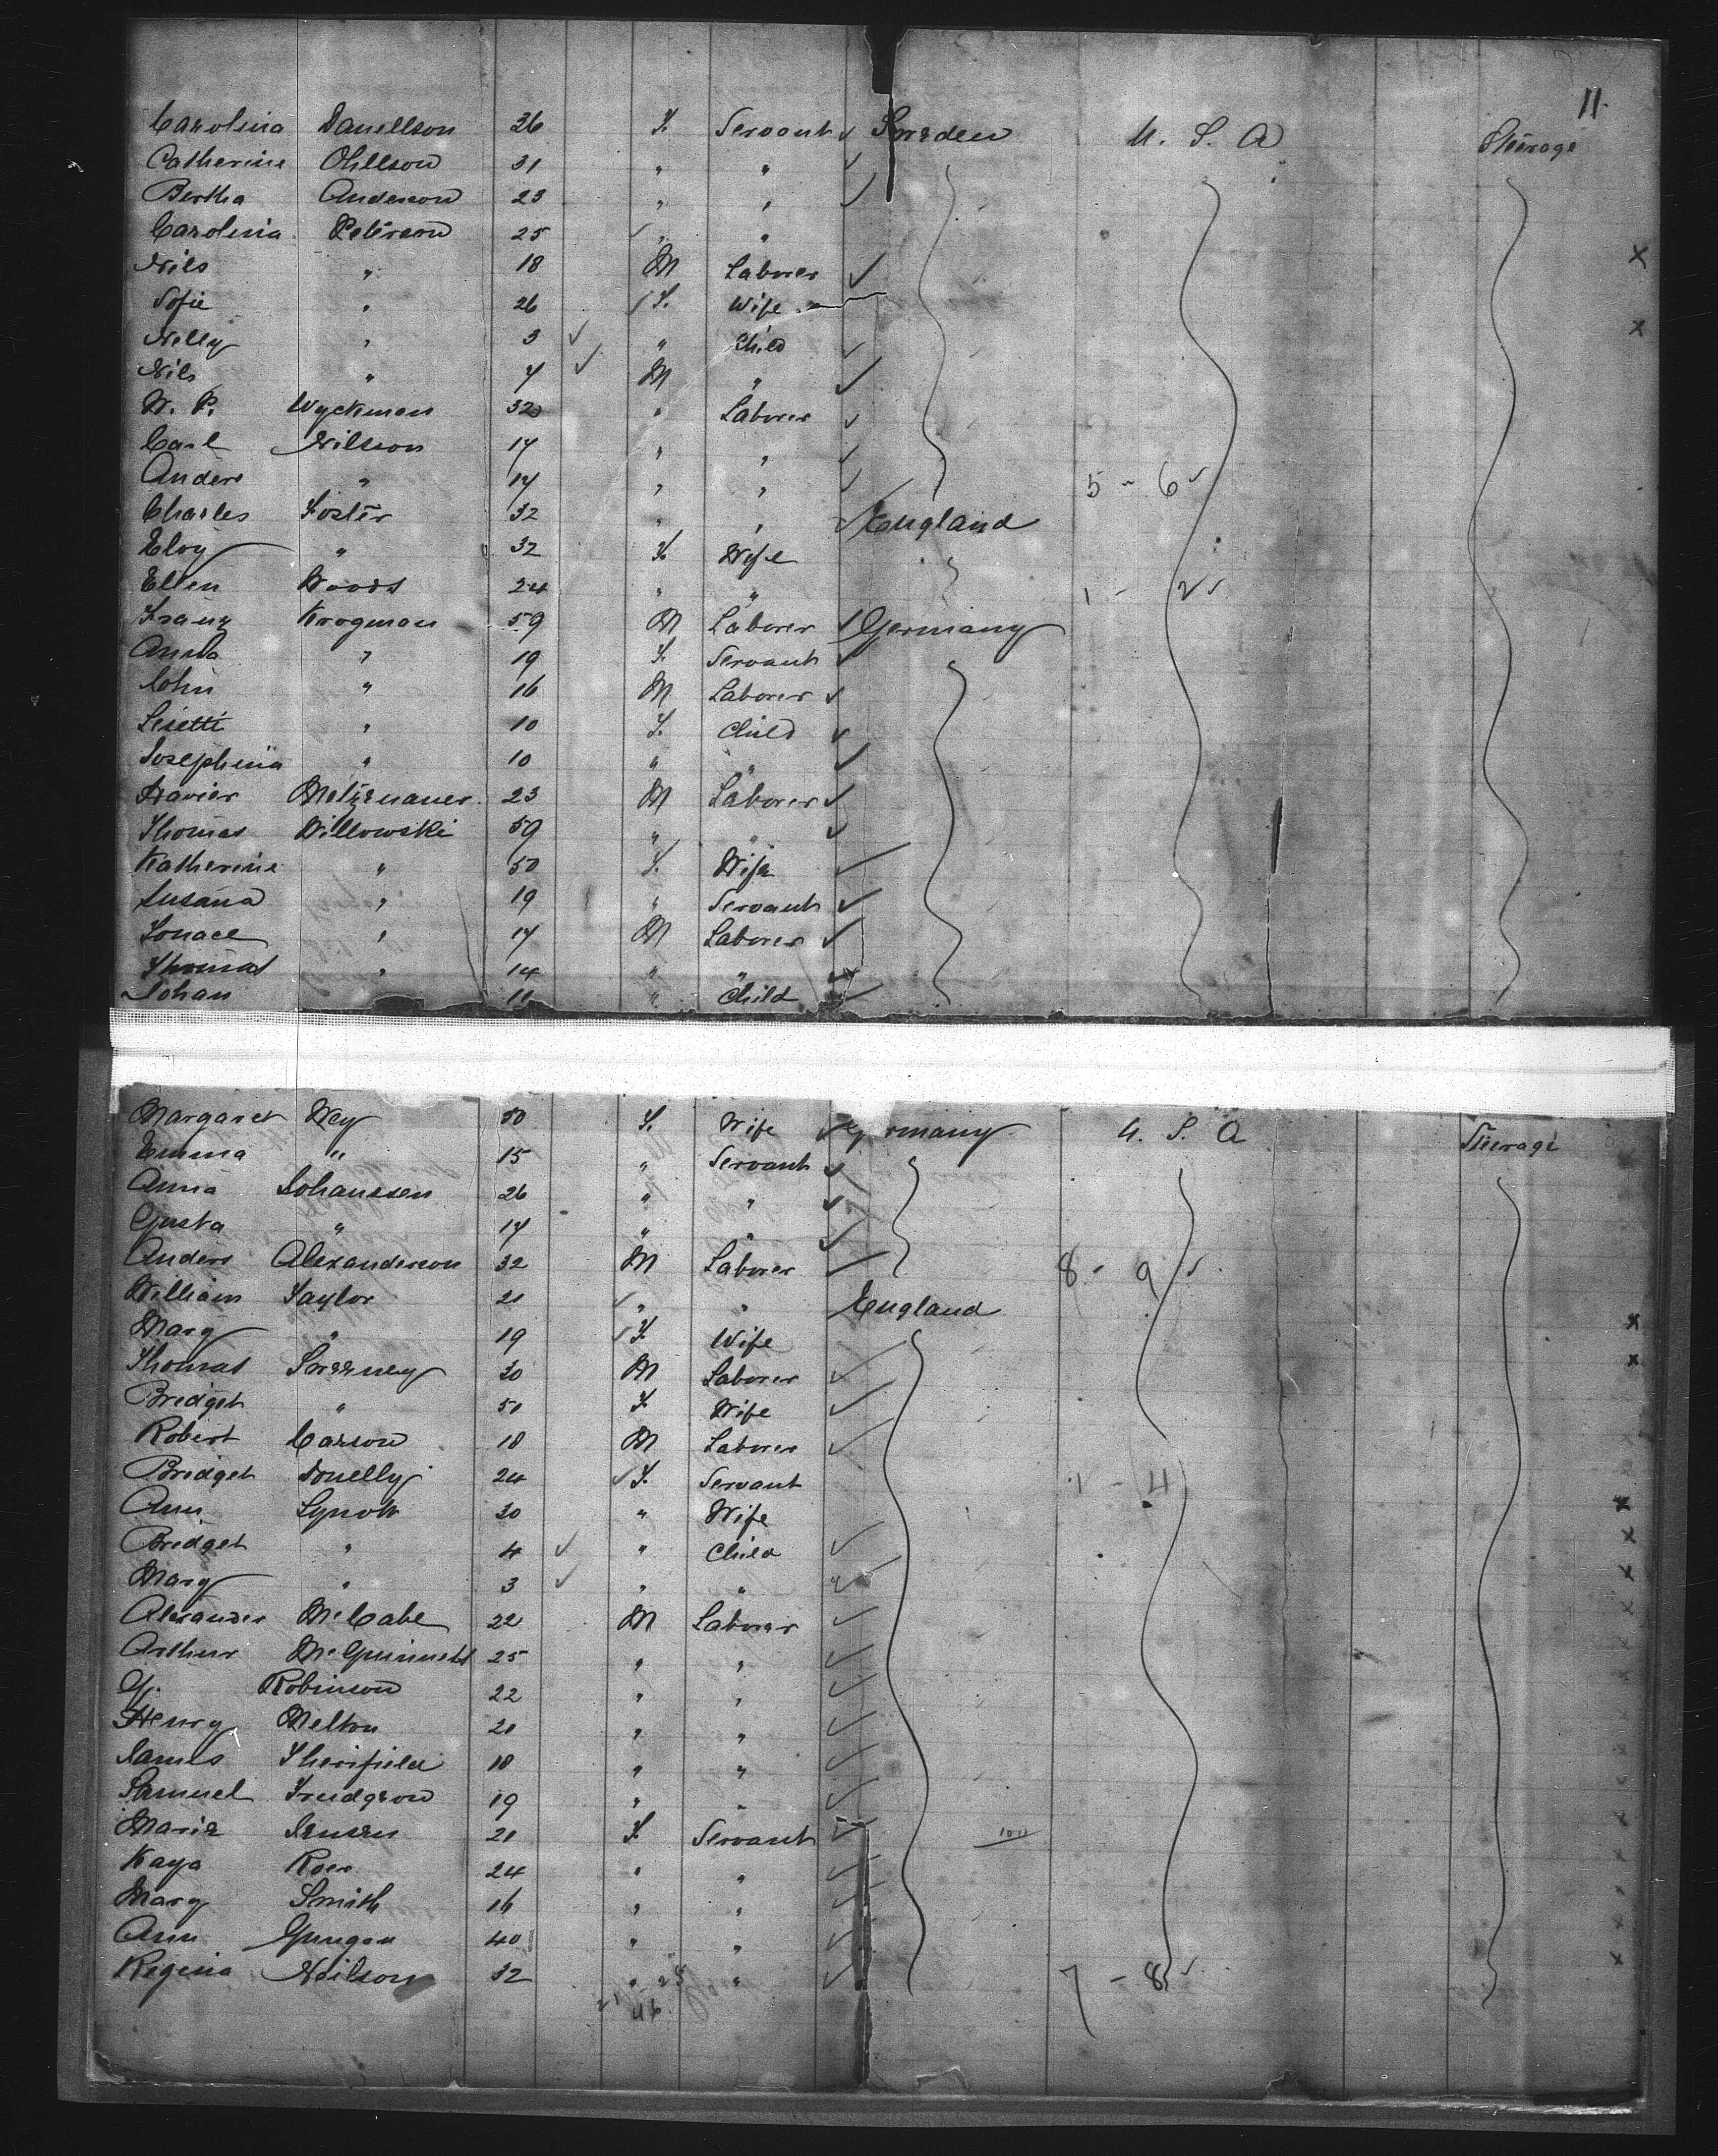 11.
Carolina Danellson 26 F. Servant ✓ Sweden U. S. A Steerage
Catherine Ohllson 31 " " ✓
Bertha Anderson 23 " " ✓
Carolina Peterson 25 ✓ " "
Nils " 18 M Laborer ✓ x
Sofie " 26 F. Wife
Nelly " 3 ✓ " Child ✓ x
Nils " 4 ✓ M " ✓
N. P. Wyckman 32 " Laborer ✓
Carl Nilsson 17 " " ✓
Anders " 17 " " ✓ 5 - 6 ✓
Charles Foster 32 " " ✓ England
" 32 F. Wife
Ellen Woods 24 " " 1 - 2 ✓
Franz Krogman 59 M Laborer ✓ Germany
Anna " 19 F. Servant ✓
John " 16 M Laborer ✓
Lisette " 10 F. Child ✓
Josephina " 10 " " ✓
Xavier 23 M Laborer ✓
Thomas Willowski 59 " " ✓
Katherine " 50 F. Wife ✓
Susana " 19 " Servant ✓
" 17 M Laborer ✓
Thomas " 14 " " ✓
Johan " 11 " Child ✓
Margaret Wey 50 F. Wife ✓ Germany U. S. A Steerage
Emma " 15 " Servant ✓
Anna Johanssen 26 " " ✓
Gusta " 17 " " ✓
Anders Alexanderson 32 M Laborer ✓ 8 - 9 ✓
William Taylor 21 ✓ " " England x
Mary " 19 ✓ F. Wife x
Thomas Sweeney 30 M Laborer ✓
Bridget " 51 F. Wife ✓
Robert Carson 18 M Laborer ✓
Bridget Donelly 24 ✓ F. Servant 1 - 4
Ann 30 " Wife x
Bridget " 4 ✓ " Child ✓ x
Mary " 3 ✓ " " ✓ x
Alexander McCabe 22 M Laborer ✓ x
Arthur McGuinness 25 " " ✓ x
G. Robinson 22 " " ✓ x
Henry Melton 21 " " ✓ x
James 18 " " ✓ x
Samuel 19 " " ✓ x
Marie Jensen 21 F. Servant ✓ x
Kaya Roer 24 " " ✓ x
Mary Smith 16 " " ✓ x
Ann 40 " " ✓ x
Regina Neilson 32 " " ✓ 7 - 8 ✓
21 25
46